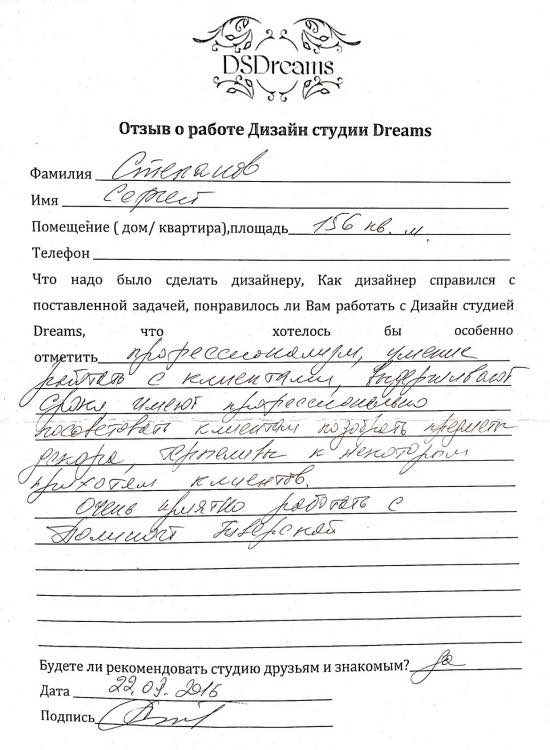 DSDreams
Отзыв о работе Дизайн студии Dreams
Фамилия Степанов
Имя Сергей
Помещение ( дом/ квартира),площадь 156 кв. м.
Телефон
Что надо было сделать дизайнеру, Как дизайнер справился с
поставленной задачей, понравилось ли Вам работать с Дизайн студией
Dreams, что хотелось бы особенно
отметить профессионализм, умение
работать с клиентами, выдерживают
сроки, умеют профессионально
посоветовать клиентам подобрать предметы
декора, терпеливы к некоторым
прихотям клиентов.
Очень приятно работать с
Полиной
Будете ли рекомендовать студию друзьям и знакомым? да
Дата 22.09.2016
Подпись